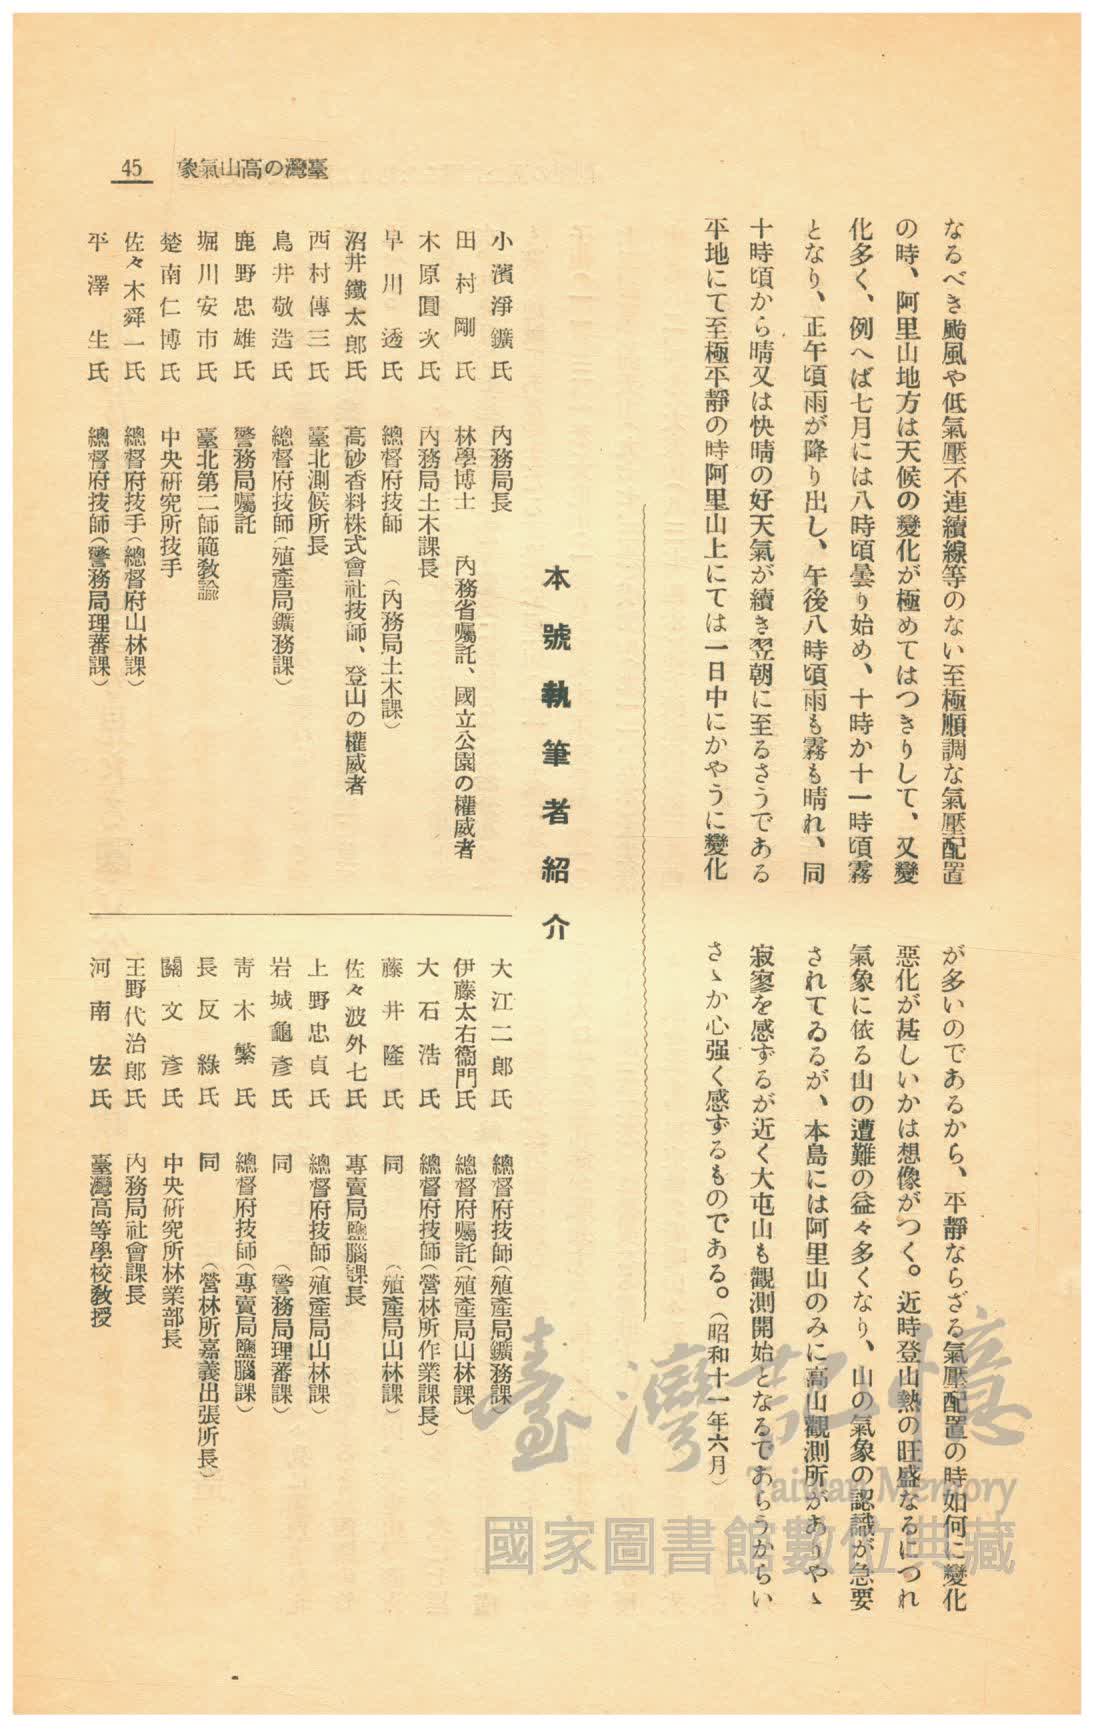 臺灣の高山氣象
45
なるべき颱風や低氣壓不連續線等のない至極順調な氣壓配置
の時、阿里山地方は天候の變化が極めてはつきりして、又變
化多く、例へば七月には八時頃曇り始め、十時か十一時頃霧
となり、正午頃雨が降り出し、午後八時頃雨も霧も晴れ、同
十時頃から晴又は快晴の好天氣が續き翌朝に至るさうである
平地にて至極平靜の時阿里山上にては一日中にかやうに變化
が多いのであるから、平靜ならざる氣壓配置の時如何に變化
惡化が甚しいかは想像がつく。近時登山熱の旺盛なるにつれ
氣象に依る山の遭難の益々多くなり、山の氣象の認識が急要
されてゐるが、本島には阿里山のみに高山觀測所がありやゝ
寂寥を感ずるが近く大屯山も觀測開始となるであらうからい
さゝか心强く感ずるものである。（昭和十一年六月）
本號執筆者紹介
小濱淨鑛氏 內務局長
田村剛氏 林學博士 內務省囑託、國立公園の權威者
木原圓次氏 內務局土木課長
早川透氏 總督府技師（內務局土木課）
沼井鐵太郎氏 高砂香料株式會社技師、登山の權威者
西村傳三氏 臺北測候所長
鳥井敬造氏 總督府技師（殖產局鑛務課）
鹿野忠雄氏 警務局囑託
堀川安市氏 臺北第二師範敎諭
楚南仁博氏 中央硏究所技手
佐々木舜一氏 總督府技手（總督府山林課）
平澤生氏 總督府技師（警務局理蕃課）
大江二郎氏 總督府技師（殖產局鑛務課）
伊藤太右衞門氏 總督府囑託（殖產局山林課）
大石浩氏 總督府技師（營林所作業課長）
藤井隆氏 同（殖產局山林課）
佐々波外七氏 專賣局鹽腦課長
上野忠貞氏 總督府技師（殖產局山林課）
岩城龜彥氏 同（警務局理蕃課）
靑木繁氏 總督府技師（專賣局鹽腦課）
長反綠氏 同（營林所嘉義出張所長）
關文彥氏 中央硏究所林業部長
王野代治郎氏 內務局社會課長
河南宏氏 臺灣高等學校敎授
臺灣記憶
Taiwan Memory
國家圖書館數位典藏